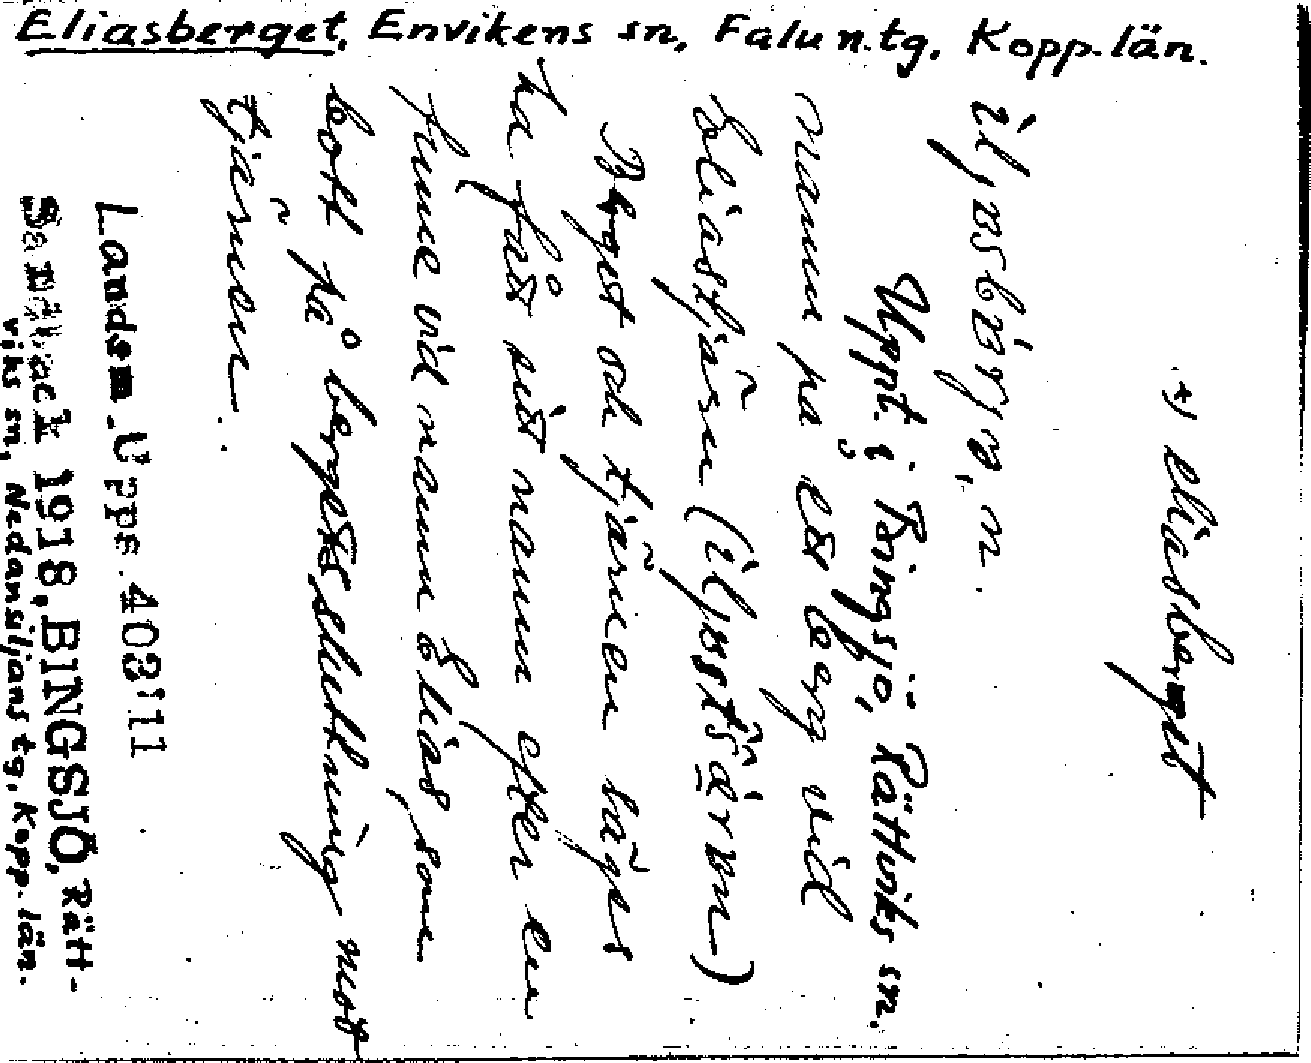 Eliasberget, Envikens sn, Falu n.tg, Kopp. län.
*) eliasberget
Uppt. i Bingsjö, Rättviks sn.
namn på ett berg vid
Eliastjärn
Berget och tjärnen säges
ha fått sitt namn efter en
finne vid namn Elias, som
bott på bergets sluttning mot
tjärnen.
Landsm. Upps. 403:11
1918, BINGSJÖ, Rätt-
viks sn, Nedansiljans tg, Kopp. län.